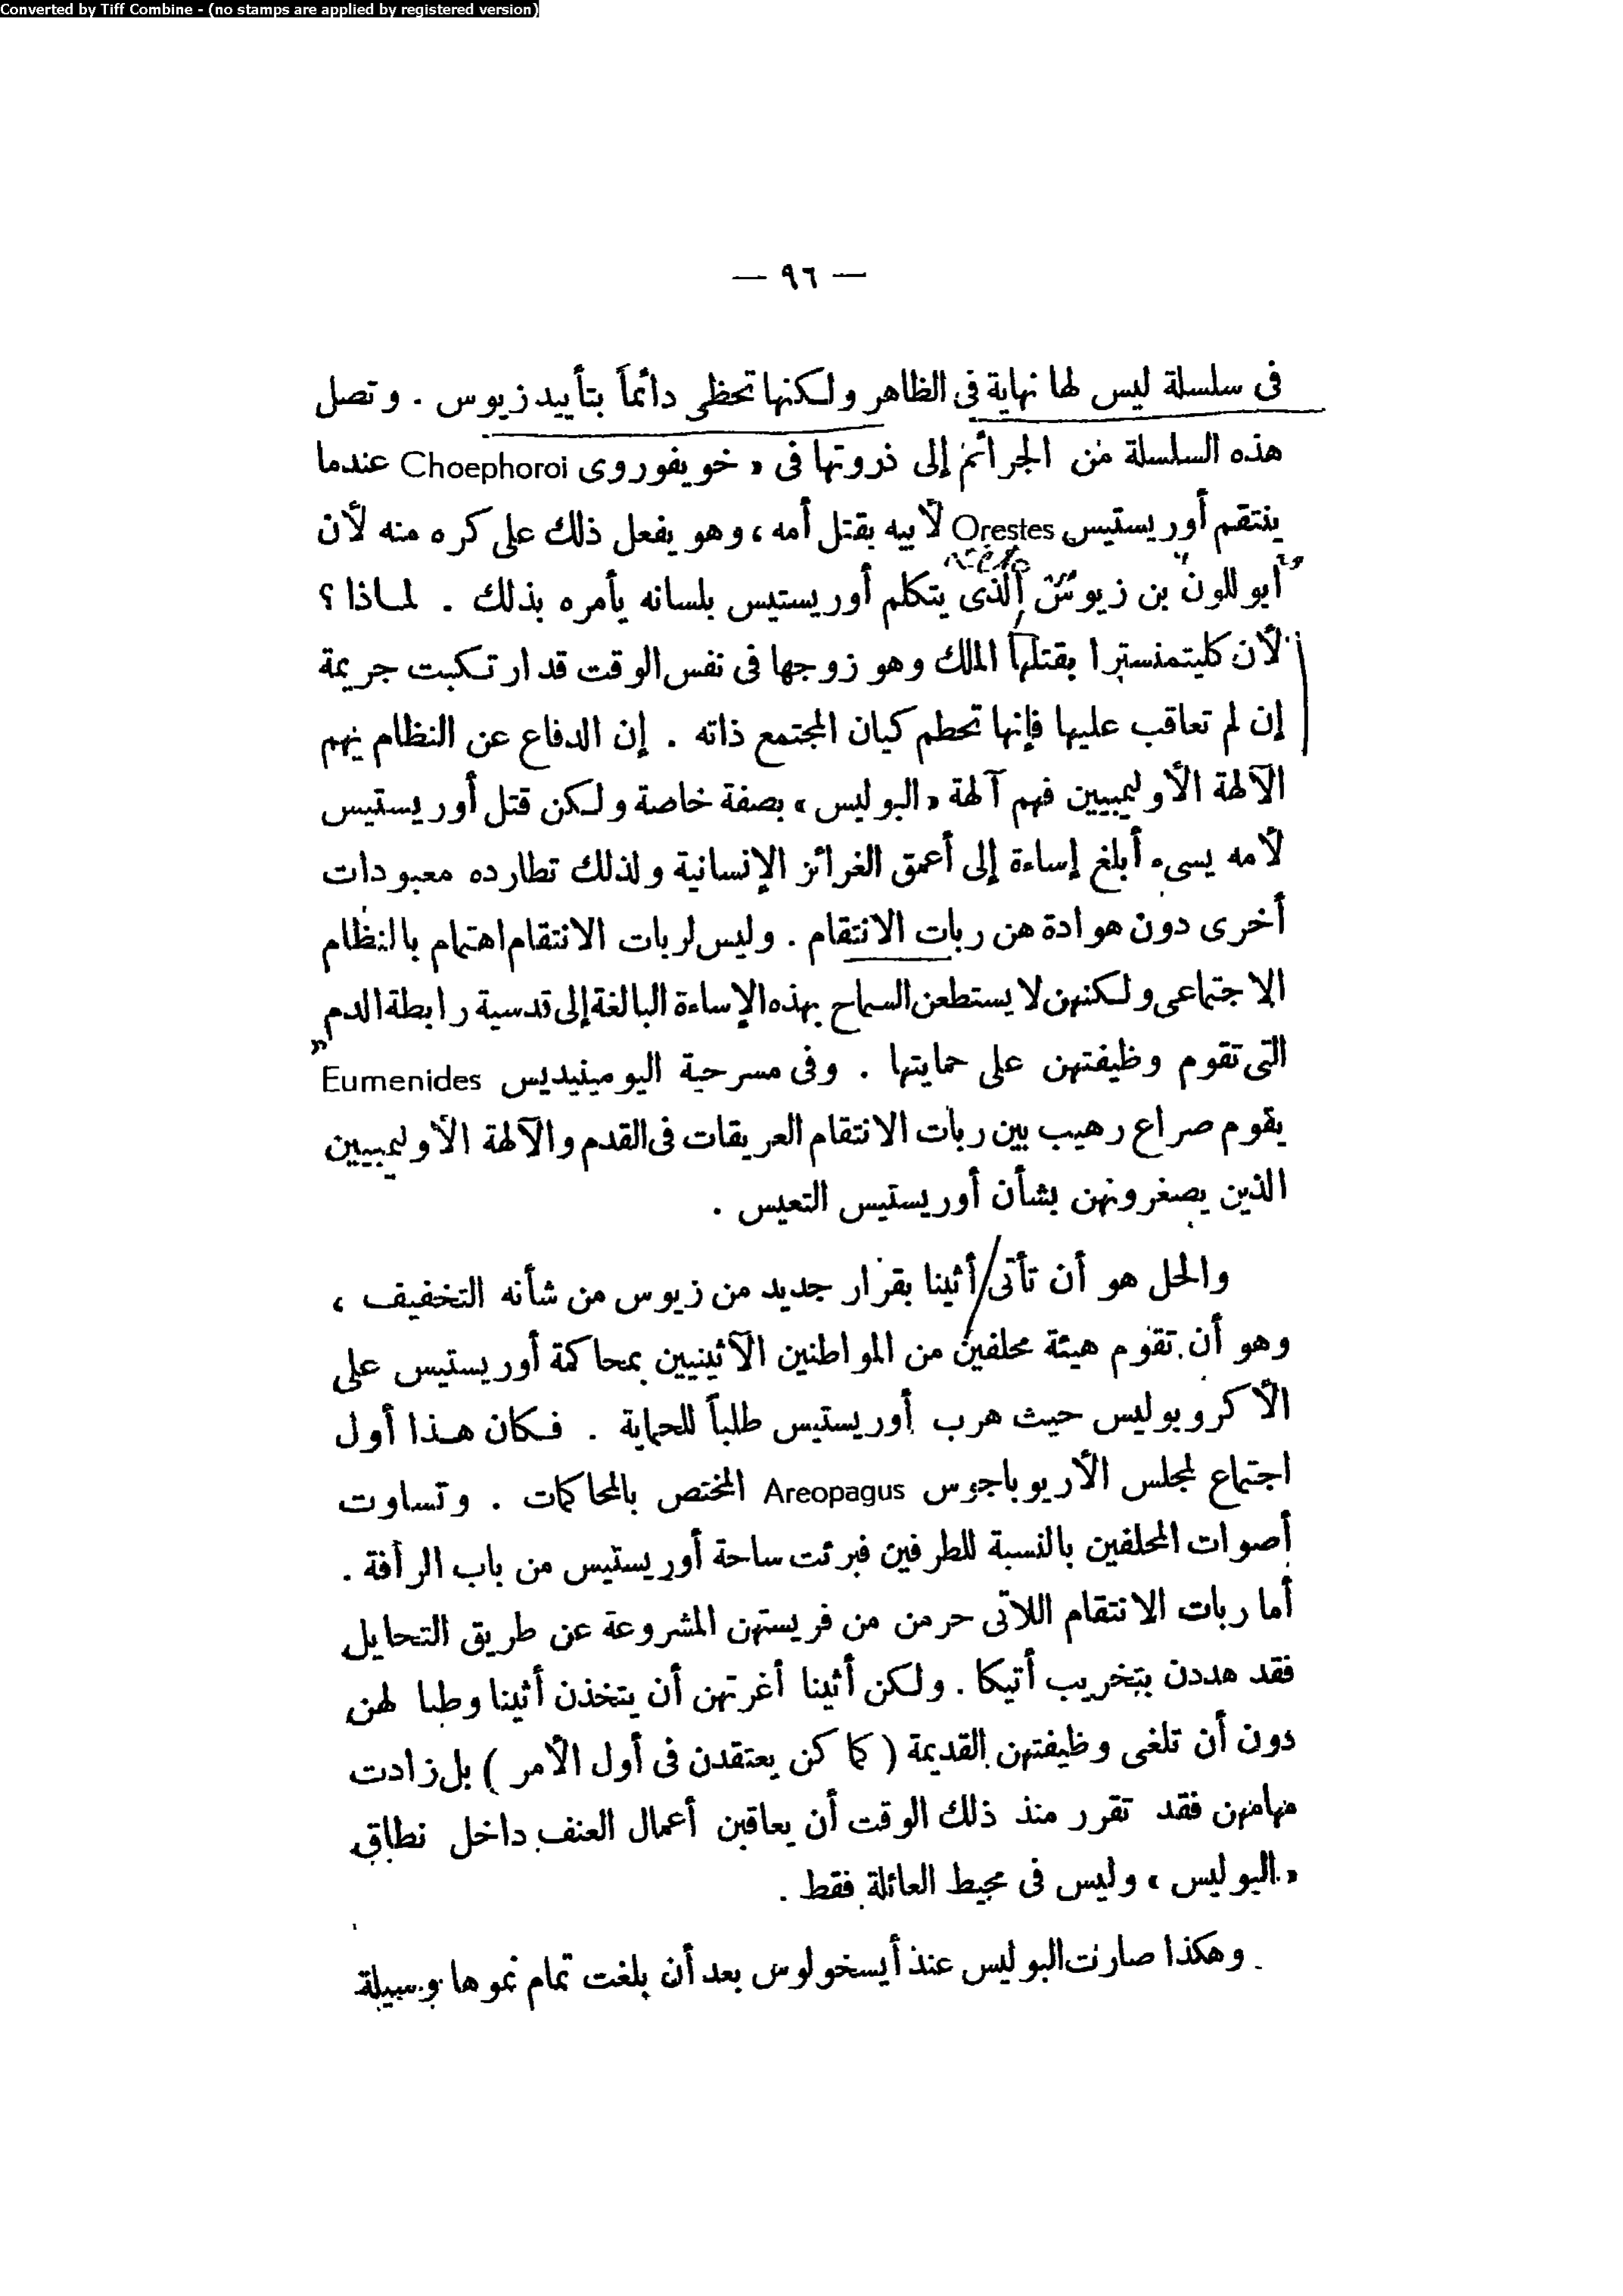 Converted by Tiff Combine - (no stamps are applied by registered version)
— ٩٦ —
فى سلسلة ليس لها نهاية فى الظاهر ولكنها تحظى دائماً بتأييد زيوس . وتصل
هذه السلسلة من الجرائم إلى ذروتها فى « خويفوروى Choephoroi عندما
ينتقم أوريستيس Orestes لأبيه بقتل أمه ، وهو يفعل ذلك على كره منه لأن
أبوللون بن زيوس الذى يتكلم أوريستيس بلسانه يأمره بذلك . لماذا ؟
لأن كليتمنسترا بقتلها الملك وهو زوجها فى نفس الوقت قد ارتكبت جريمة
إن لم تعاقب عليها فإنها تحطم كيان المجتمع ذاته . إن الدفاع عن النظام يهم
الآلهة الأوليمبيين فهم آلهة « البوليس » بصفة خاصة ولكن قتل أوريستيس
لأمه يسىء أبلغ إساءة إلى أعمق الغرائز الإنسانية ولذلك تطارده معبودات
أخرى دون هوادة هن ربات الانتقام . وليس لربات الانتقام اهتمام بالنظام
الاجتماعى ولكنهن لا يستطعن السماح بهذه الإساءة البالغة إلى قدسية رابطة الدم
التى تقوم وظيفتهن على حمايتها . وفى مسرحية اليومينيديس Eumenides »
يقوم صراع رهيب بين ربات الانتقام العريقات فى القدم والآلهة الأوليمبيين
الذين يصغرونهن بشأن أوريستيس التعيس .
والحل هو أن تأتى أثينا بقرار جديد من زيوس من شأنه التخفيف ،
وهو أن تقوم هيئة محلفين من المواطنين الآثينيين بمحاكمة أوريستيس على
الأكروبوليس حيث هرب أوريستيس طلباً للحماية . فكان هذا أول
اجتماع لمجلس الأريوباجوس Areopagus المختص بالمحاكمات . وتساوت
أصوات المحلفين بالنسبة للطرفين فبرئت ساحة أوريستيس من باب الرأفة .
أما ربات الانتقام اللاتى حرمن من فريستهن المشروعة عن طريق التحايل
فقد هددن بتخريب أتيكا . ولكن أثينا أغرتهن أن يتخذن أثينا وطنا لهن
دون أن تلغى وظيفتهن القديمة ( كما كن يعتقدن فى أول الأمر ) بل زادت
مهامهن فقد تقرر منذ ذلك الوقت أن يعاقبن أعمال العنف داخل نطاق
« البوليس » وليس فى محيط العائلة فقط .
وهكذا صارت البوليس عند أيسخولوس بعد أن بلغت تمام نموها وسيلة